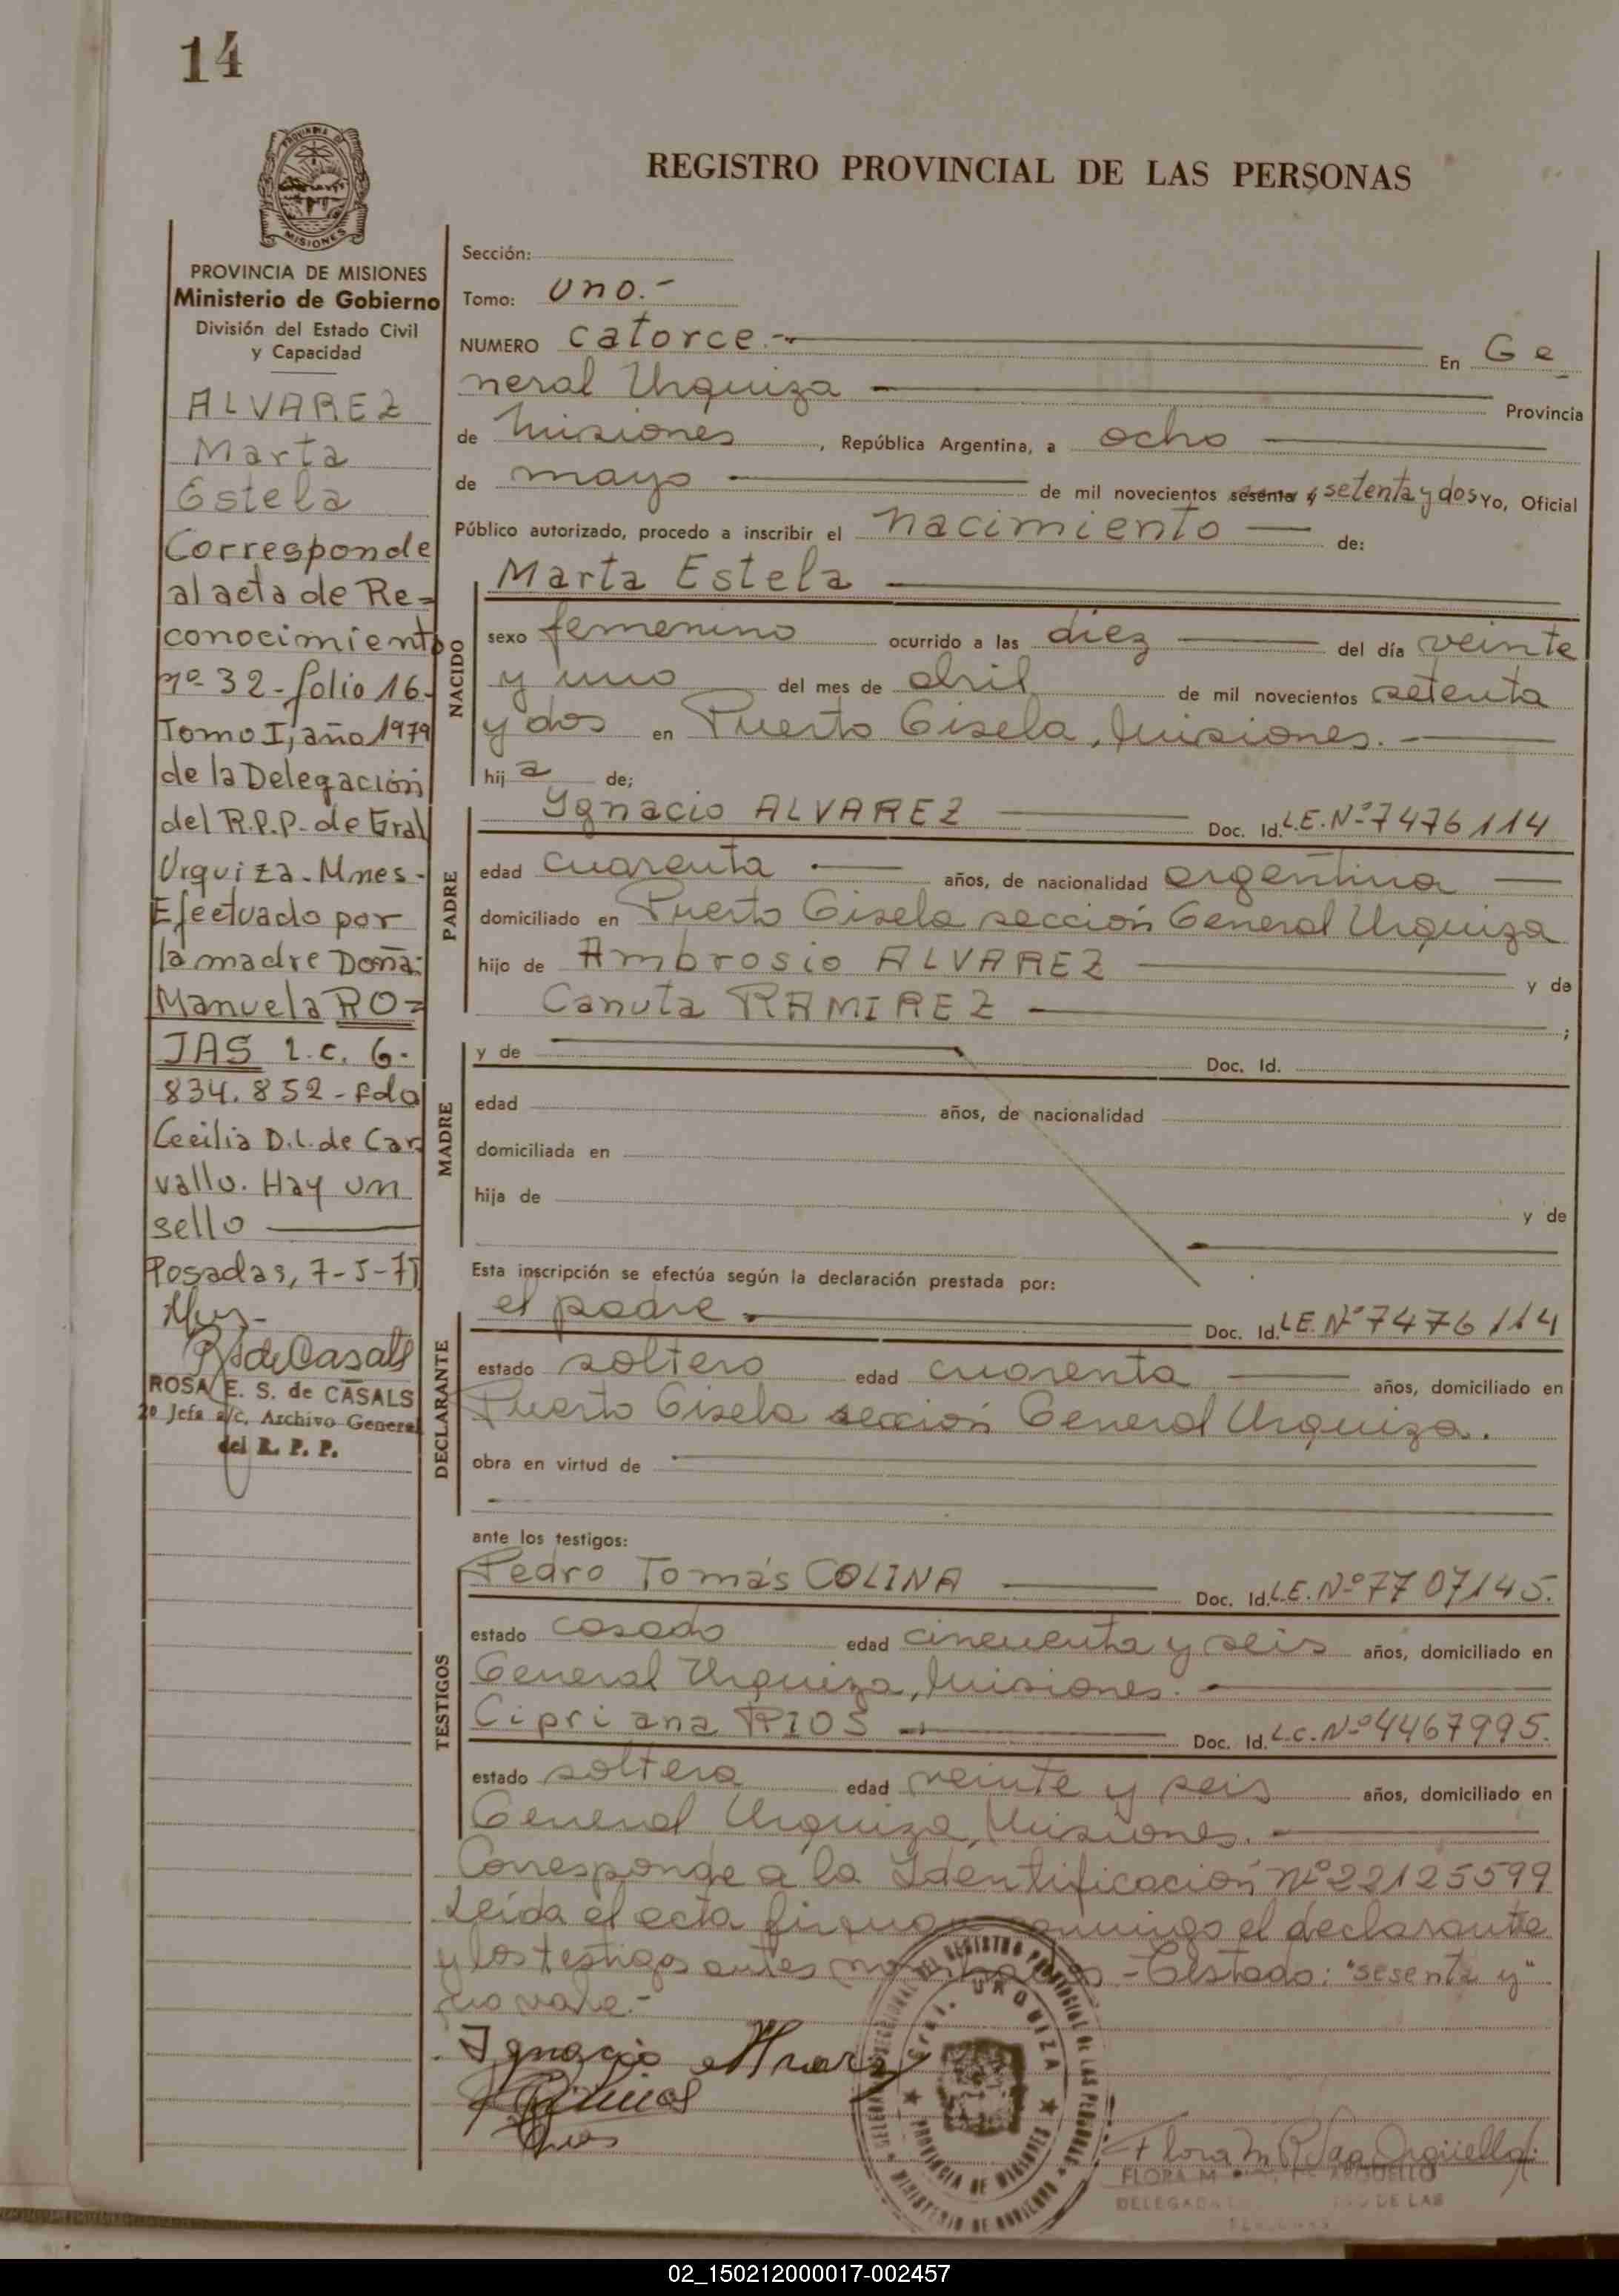 14
REGISTRO PROVINCIAL DE LAS PERSONAS
MISIONES
PROVINCIA DE MISIONES
Ministerio de Gobierno
División del Estado Civil
y Capacidad
ALVAREZ
Marta
Estela
Corresponde
al acta de Re=
conocimiento
nº 32 - folio 16.
Tomo I, año 1979
de la Delegación
del R.P.P. de Gral
Urquiza - Mnes -
Efectuado por
la madre Doña:
Manuela RO=
JAS L.C. 6.
834.852 - Fdo
Cecilia D.L. de Car
vallo. Hay un
sello
Posadas, 7-5-
ROSA E. S. de CASALS
2º Jefa a/c. Archivo General
del R. P. P.
Sección:
Tomo: uno.-
NUMERO catorce.- En Ge
neral Urquiza Provincia
de Misiones, República Argentina, a ocho
de mayo de mil novecientos sesenta y setenta y dos Yo, Oficial
Público autorizado, procedo a inscribir el nacimiento de:
NACIDO
Marta Estela
sexo femenino ocurrido a las diez del día veinte
y uno del mes de abril de mil novecientos setenta
y dos en Puerto Gisela, Misiones.
hij a de;
PADRE
Ygnacio ALVAREZ Doc. Id. L.E. Nº 7476114
edad cuarenta años, de nacionalidad argentina
domiciliado en Puerto Gisela sección General Urquiza
hijo de Ambrosio ALVAREZ y de
Canuta RAMIREZ ;
MADRE
y de Doc. Id.
edad años, de nacionalidad
domiciliada en
hija de y de
Esta inscripción se efectúa según la declaración prestada por:
DECLARANTE
el padre. Doc. Id. L.E. Nº 7476114
estado soltero edad cuarenta años, domiciliado en
Puerto Gisela sección General Urquiza.
obra en virtud de
ante los testigos:
TESTIGOS
Pedro Tomás COLINA Doc. Id. L.E. Nº 7707145.
estado casado edad cincuenta y seis años, domiciliado en
General Urquiza, Misiones.
Cipriana RIOS Doc. Id. L.C. Nº 4467995.
estado soltera edad veinte y seis años, domiciliado en
General Urquiza, Misiones.
Corresponde a la Identificación Nº 22125599
Leída el acta firman conmigo el declarante
y los testigos antes nombrados - Testado: "sesenta y"
no vale.-
Ignacio Alvarez
Gral. URQUIZA
PROVINCIA DE MISIONES
MINISTERIO DE GOBIERNO
FLORA M ARGÜELLO
02_150212000017-002457